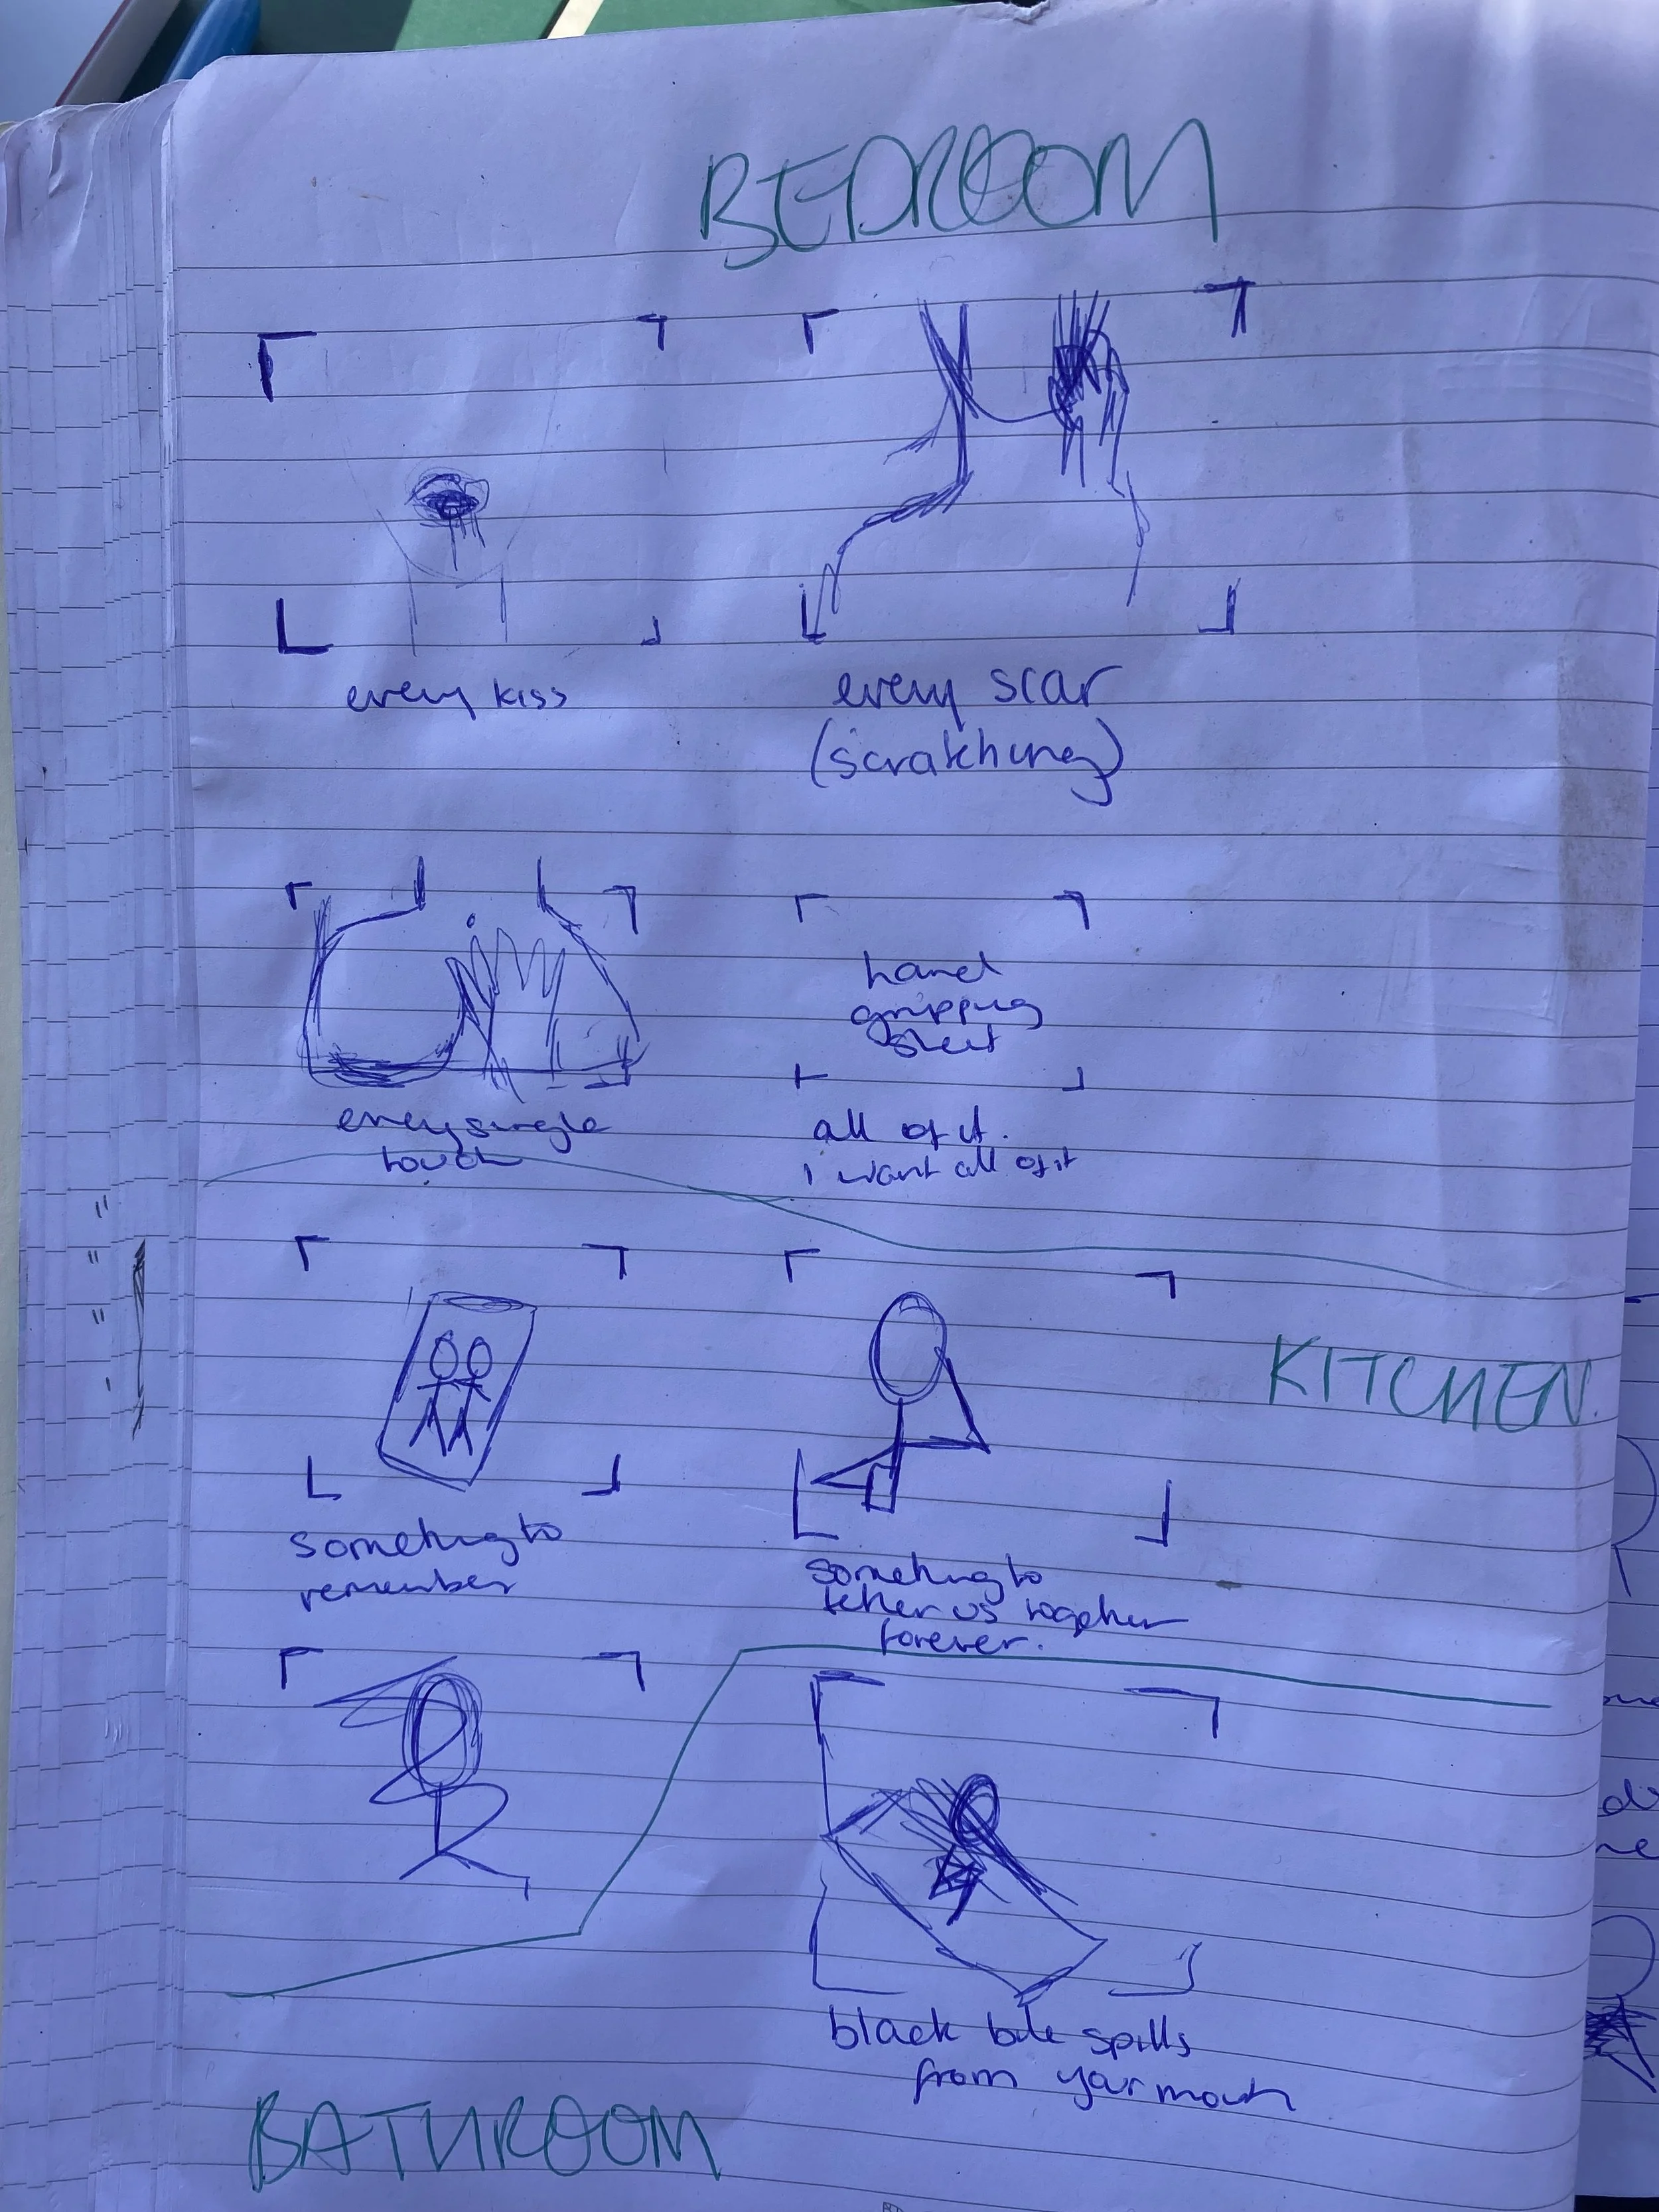 BEDROOM
every kiss
every scar
(scratching)
every single
touch
hand
gripping
sheet
all of it.
I want all of it
KITCHEN.
something to
remember
something to
tether us together
forever.
black bile spills
from your mouth
BATHROOM